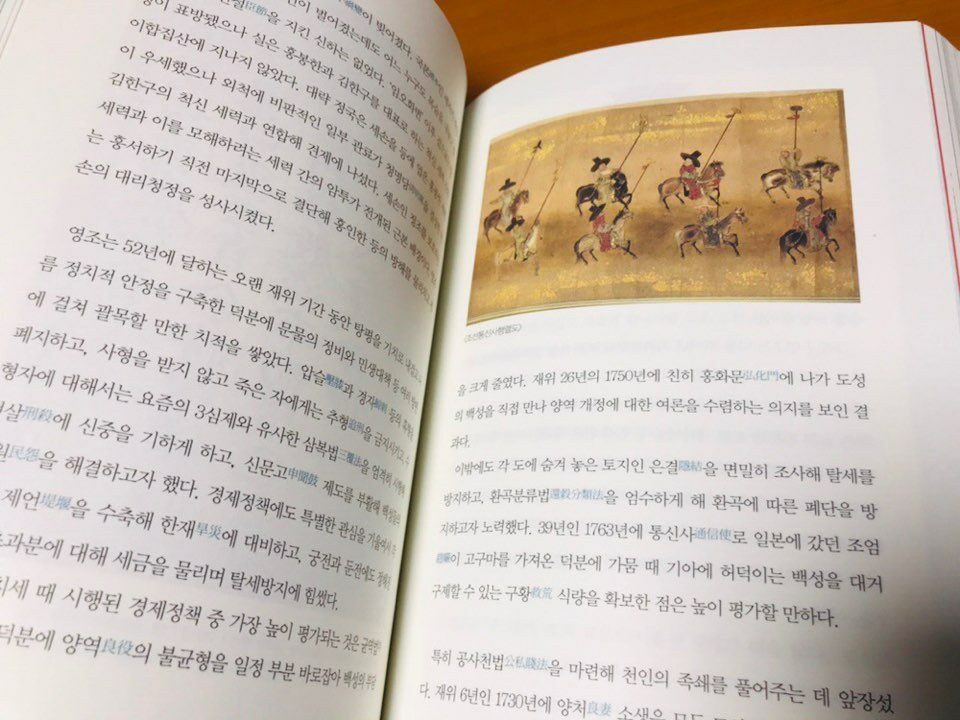 이 벌어졌는데도 어느 누구도
臣節을 지킨 신하는 없었다. '임오화변' 이후
이 표방됐으나 실은 홍봉한과 김한구를 대표로 하는
이합집산에 지나지 않았다. 대략 정국은 세손을 등에 업은
이 우세했으나 외척에 비판적인 일부 관료가
김한구의 척신 세력과 연합해 견제에 나섰다. 세손인 정조를
세력과 이를 모해하려는 세력 간의 암투가 전개된 근본 배경
는 홍서하기 직전 마지막으로 결단해 홍인한 등의 방해를
손의 대리청정을 성사시켰다.
영조는 52년에 달하는 오랜 재위 기간 동안 탕평을 기치로 내걸고
름 정치적 안정을 구축한 덕분에 문물의 정비와 민생대책 등 여러 방면
에 걸쳐 괄목할 만한 치적을 쌓았다. 압슬壓膝과 경자 등의
폐지하고, 사형을 받지 않고 죽은 자에게는 추형追刑을 금지시키고,
형자에 대해서는 요즘의 3심제와 유사한 삼복법三覆法을 엄격히 시행해
살刑殺에 신중을 기하게 하고, 신문고申聞鼓 제도를 부활해 백성들의
民怨을 해결하고자 했다. 경제정책에도 특별한 관심을 기울여
제언堤堰을 수축해 한재旱災에 대비하고, 궁전과 둔전에도 정해진
과분에 대해 세금을 물리며 탈세방지에 힘썼다.
치세 때 시행된 경제정책 중 가장 높이 평가되는 것은 균역법
덕분에 양역良役의 불균형을 일정 부분 바로잡아 백성의 부담
〈조선통신사행렬도〉
을 크게 줄였다. 재위 26년의 1750년에 친히 홍화문弘化門에 나가 도성
의 백성을 직접 만나 양역 개정에 대한 여론을 수렴하는 의지를 보인 결
과다.
이밖에도 각 도에 숨겨 놓은 토지인 은결隱結을 면밀히 조사해 탈세를
방지하고, 환곡분류법還穀分類法을 엄수하게 해 환곡에 따른 폐단을 방
지하고자 노력했다. 39년인 1763년에 통신사通信使로 일본에 갔던 조엄
趙曮이 고구마를 가져온 덕분에 가뭄 때 기아에 허덕이는 백성을 대거
구제할 수 있는 구황救荒 식량을 확보한 점은 높이 평가할 만하다.
특히 공사천법公私賤法을 마련해 천인의 족쇄를 풀어주는 데 앞장섰
다. 재위 6년인 1730년에 양처良妻 소생은 모두